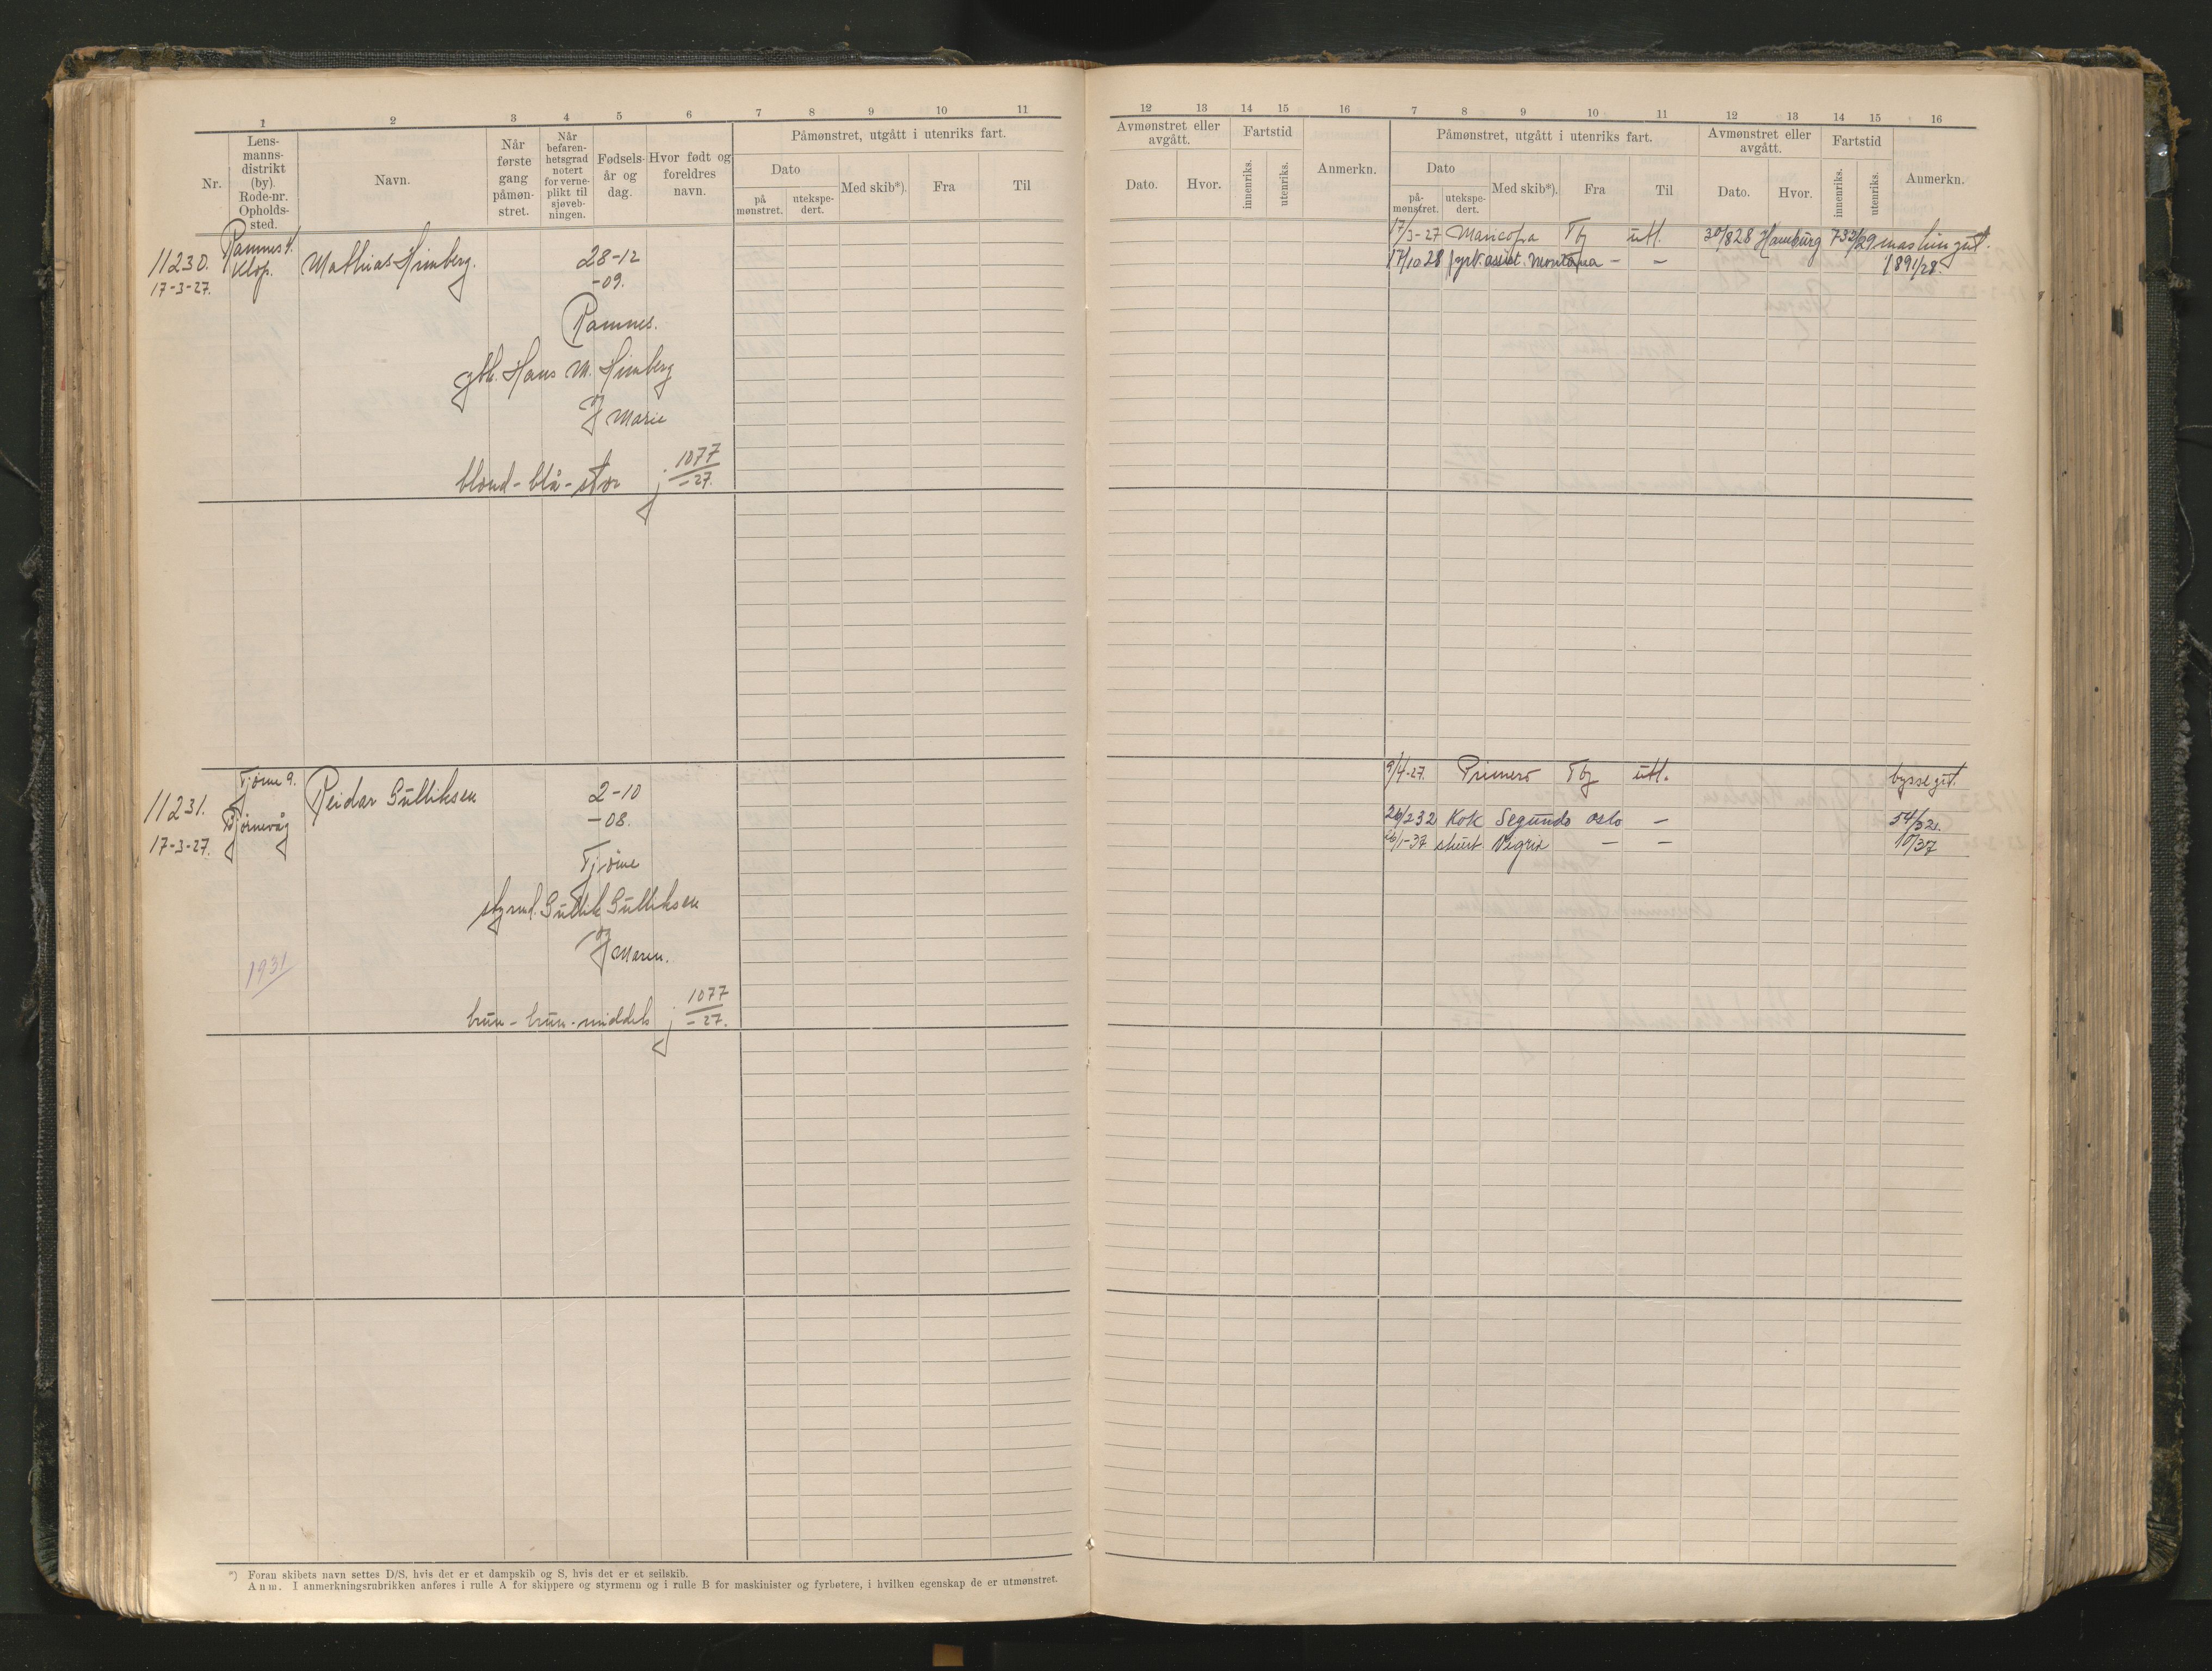 1 2 3 4 5 6 7 8 9 10 11
Nr.
Lens-
manns-
distrikt
(by).
Rode-nr.
Opholds-
sted.
Navn.
Når
første
gang
påmøn-
stret.
Når
befaren-
hetsgrad
notert
for verne-
plikt til
sjøveb-
ningen.
Fødsels-
år og
dag.
Hvor født og
foreldres
navn.
Påmønstret, utgått i utenriks fart.
Dato
på
mønstret.
utekspe-
dert.
Med skib*).
Fra
Til
11230.
17-3-27.
Ramnes 4.
Klop.
Mathias Himberg.
28-12
-09.
Ramnes.
gbr. Hans M. Himberg
og Marie
blond - blå - stor j 1077/-27.
11231.
17-3-27.
Tjøme 9.
Bjørnevåg
Reidar Gulliksen
2-10
-08.
Tjøme
styrmd. Gullik Gulliksen
og Maren.
1931
brun - brun - middels j 1077/-27.
*) Foran skibets navn settes D/S, hvis det er et dampskib og S, hvis det er et seilskib.
Anm. I anmerkningsrubrikken anføres i rulle A for skippere og styrmenn og i rulle B for maskinister og fyrbøtere, i hvilken egenskap de er utmønstret.
12 13 14 15 16 7 8 9 10 11 12 13 14 15 16
Avmønstret eller
avgått.
Dato.
Hvor.
Fartstid
innenriks.
utenriks.
Anmerkn.
Påmønstret, utgått i utenriks fart.
Dato
på-
mønstret.
utekspe-
dert.
Med skib*).
Fra
Til
Avmønstret eller
avgått.
Dato.
Hvor.
Fartstid
innenriks.
utenriks.
Anmerkn.
17/3-27 Maricopa Tbg utl. 30/8 28 Hamburg 732/29 maskingut.
17/10 28 fyrb. assist. Montana - - 1891/28.
9/4-27. Primero Tbg utl. byssegut.
26/2 32 Kok Segundo Oslo - 54/32.
26/1-37 stuert Vigrid - - 10/37